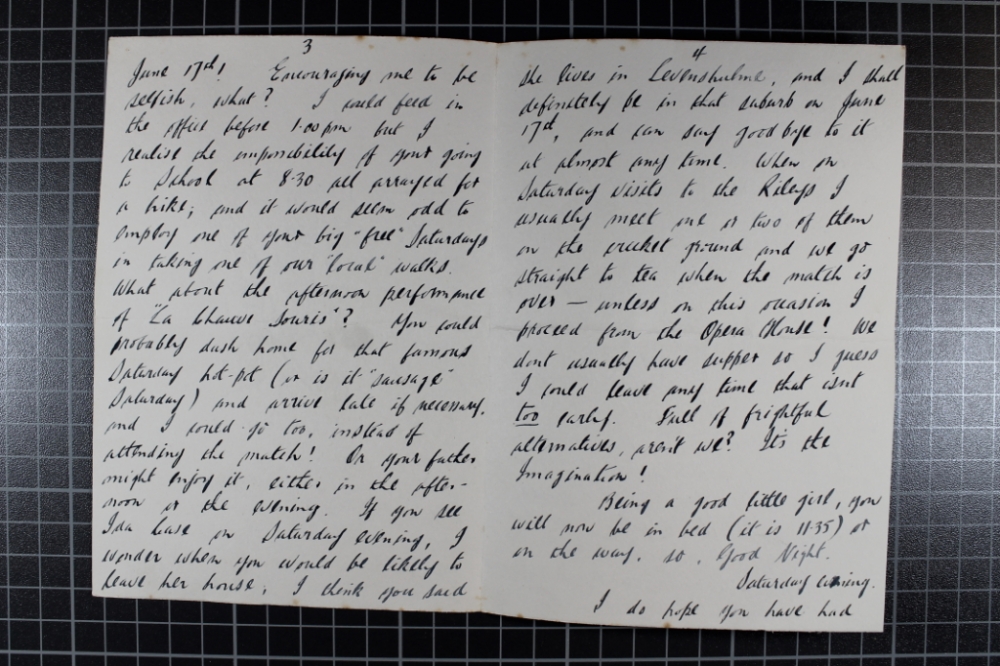 3
June 17th! Encouraging me to be
selfish, what? I could feed in
the office before 1.00pm but I
realise the impossibility of your going
to School at 8.30 all arrayed for
a hike; and it would seem odd to
employ one of your big "free" Saturdays
in taking one of our "local" walks.
What about the afternoon performance
of "La Chauve Souris"? You could
probably dash home for that famous
Saturday hot-pot (or is it "sausage"
Saturday) and arrive late if necessary,
and I could go too, instead of
attending the match! Or your father
might enjoy it, either in the after-
noon or the evening. If you see
Ida Case on Saturday evening, I
wonder when you would be likely to
leave her house; I think you said
4
she lives in Levenshulme, and I shall
definitely be in that suburb on June
17th, and can say goodbye to it
at almost any time. When on
Saturday visits to the Rileys I
usually meet one or two of them
on the cricket ground and we go
straight to tea when the match is
over — unless on this occasion I
proceed from the Opera House! We
dont usually have supper so I guess
I could leave any time that isnt
too early. Full of frightful
alternatives, aren't we? Its the
Imagination!
Being a good little girl, you
will now be in bed (it is 11.35) or
on the way, so, Good Night.
Saturday evening.
I do hope you have had